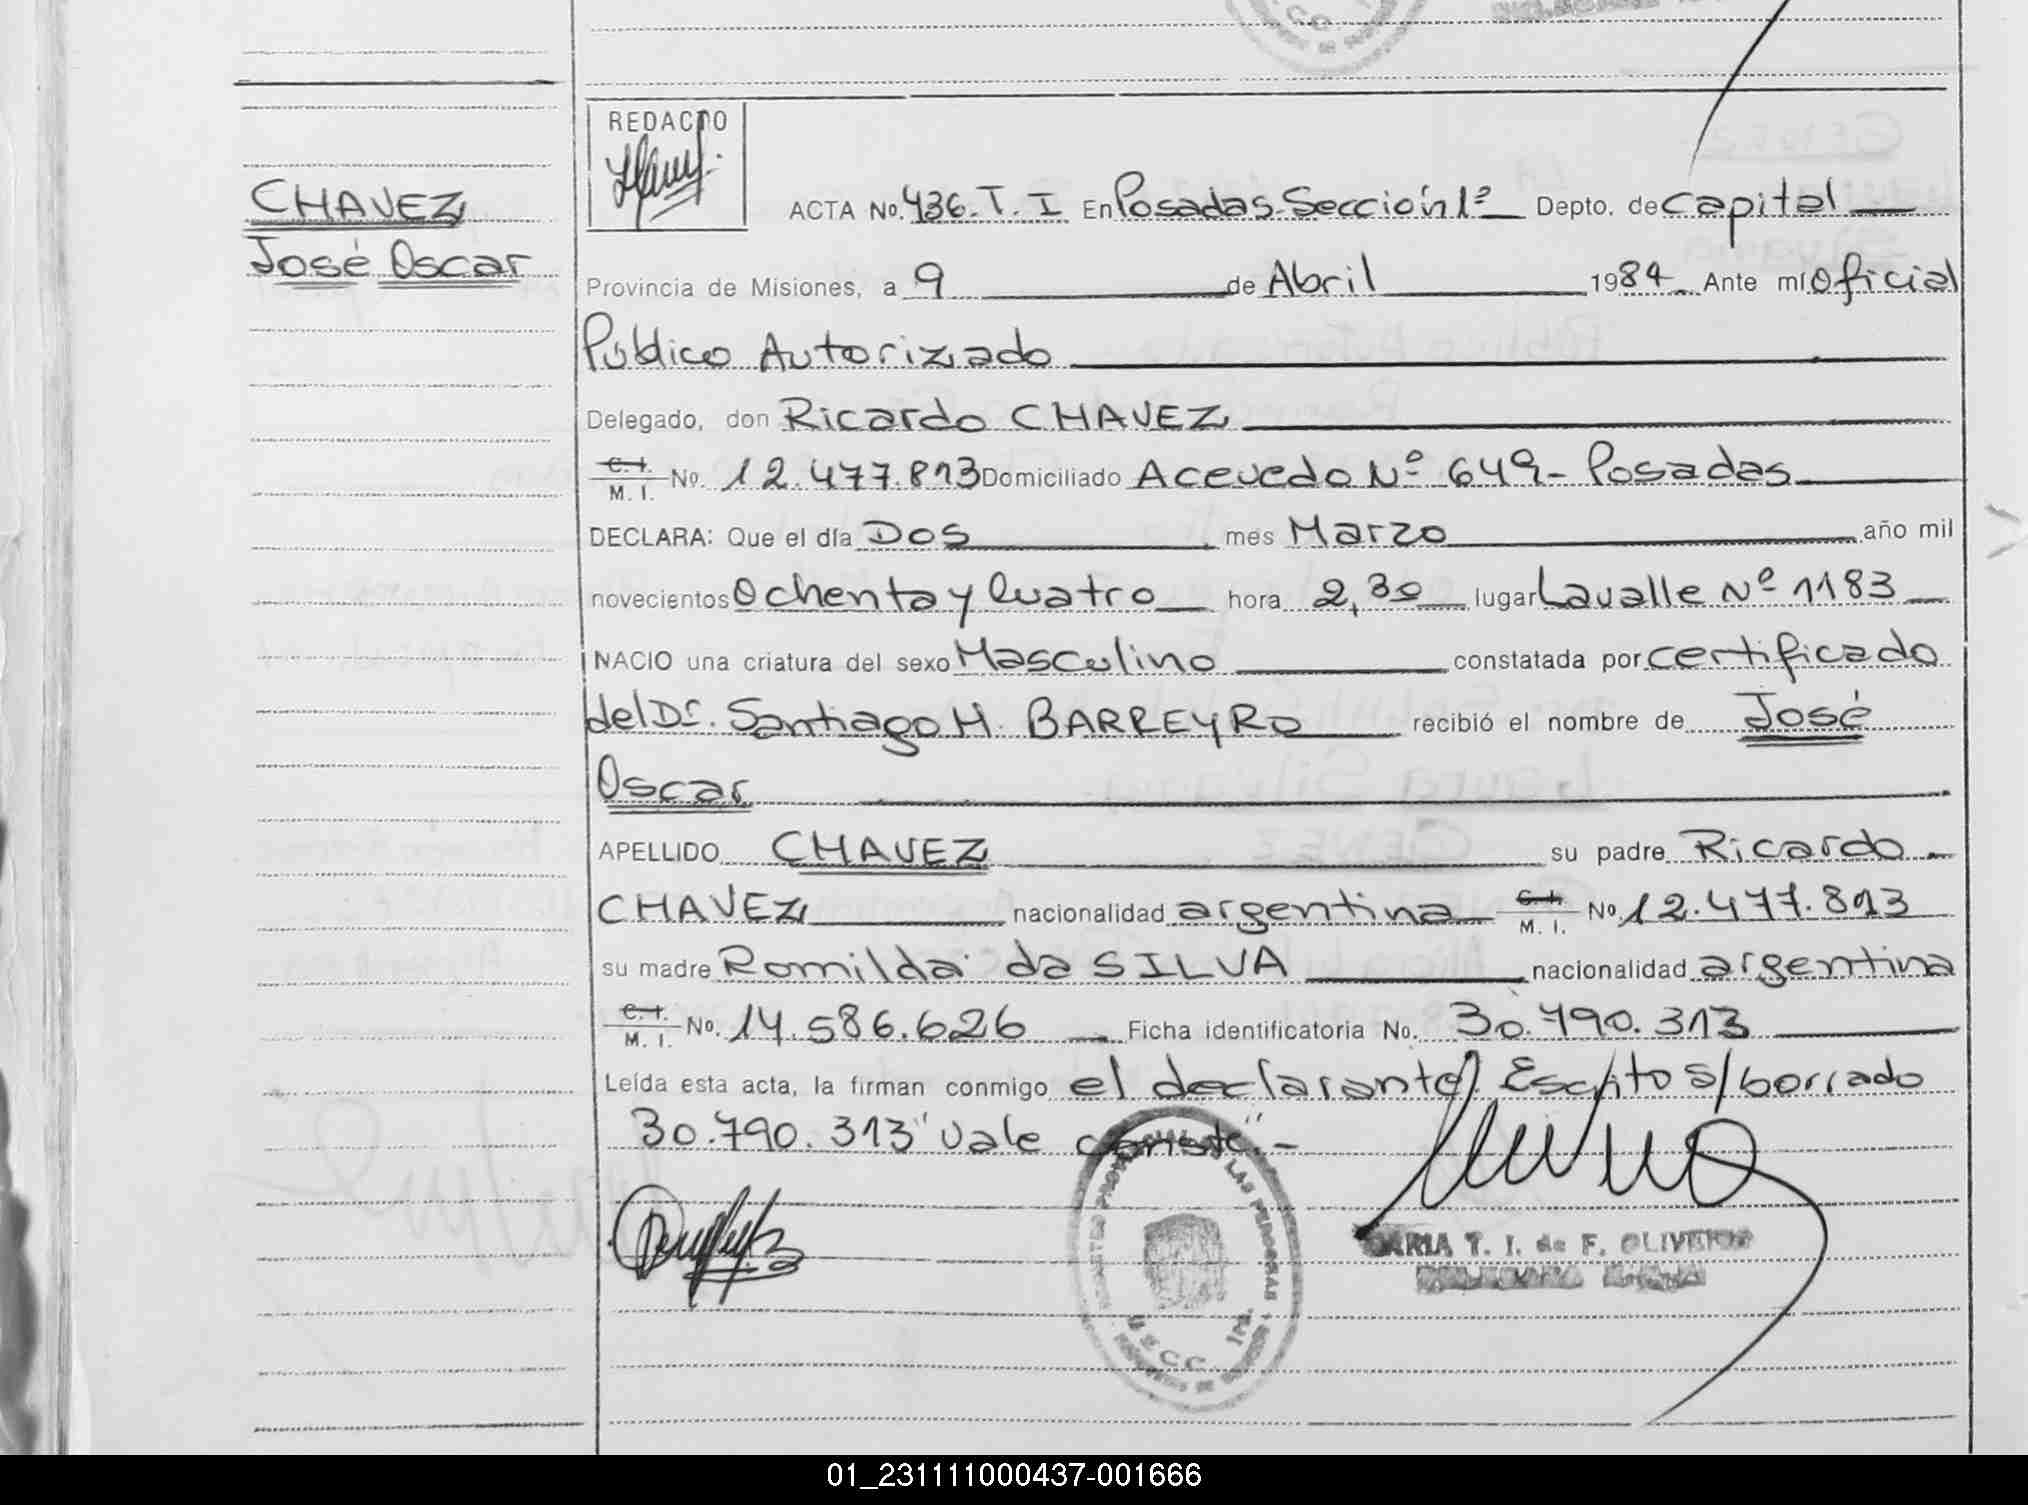 CHAVEZ
José Oscar
REDACTO
ACTA No. 436. T. I En Posadas. Sección 1ª Depto. de Capital
Provincia de Misiones, a 9 de Abril 1984 Ante mí Oficial
Público Autorizado
Delegado, don Ricardo CHAVEZ
C. I. M. I. No. 12.477.813 Domiciliado Acevedo Nº 649 - Posadas
DECLARA: Que el día Dos mes Marzo año mil
novecientos Ochenta y Cuatro hora 2,30 lugar Lavalle Nº 1183
NACIO una criatura del sexo Masculino constatada por certificado
del Dr. Santiago H. BARREYRO recibió el nombre de José
Oscar
APELLIDO CHAVEZ su padre Ricardo
CHAVEZ nacionalidad argentina C. I. M. I. No. 12.477.813
su madre Romilda da SILVA nacionalidad argentina
C. I. M. I. No. 14.586.626 Ficha identificatoria No. 30.790.313
Leída esta acta, la firman conmigo el declarante). Escrito s/borrado
30.790.313" Vale conste".-
MARIA T. I. de F. OLIVEIRA
LAS PERSONAS
01_231111000437-001666